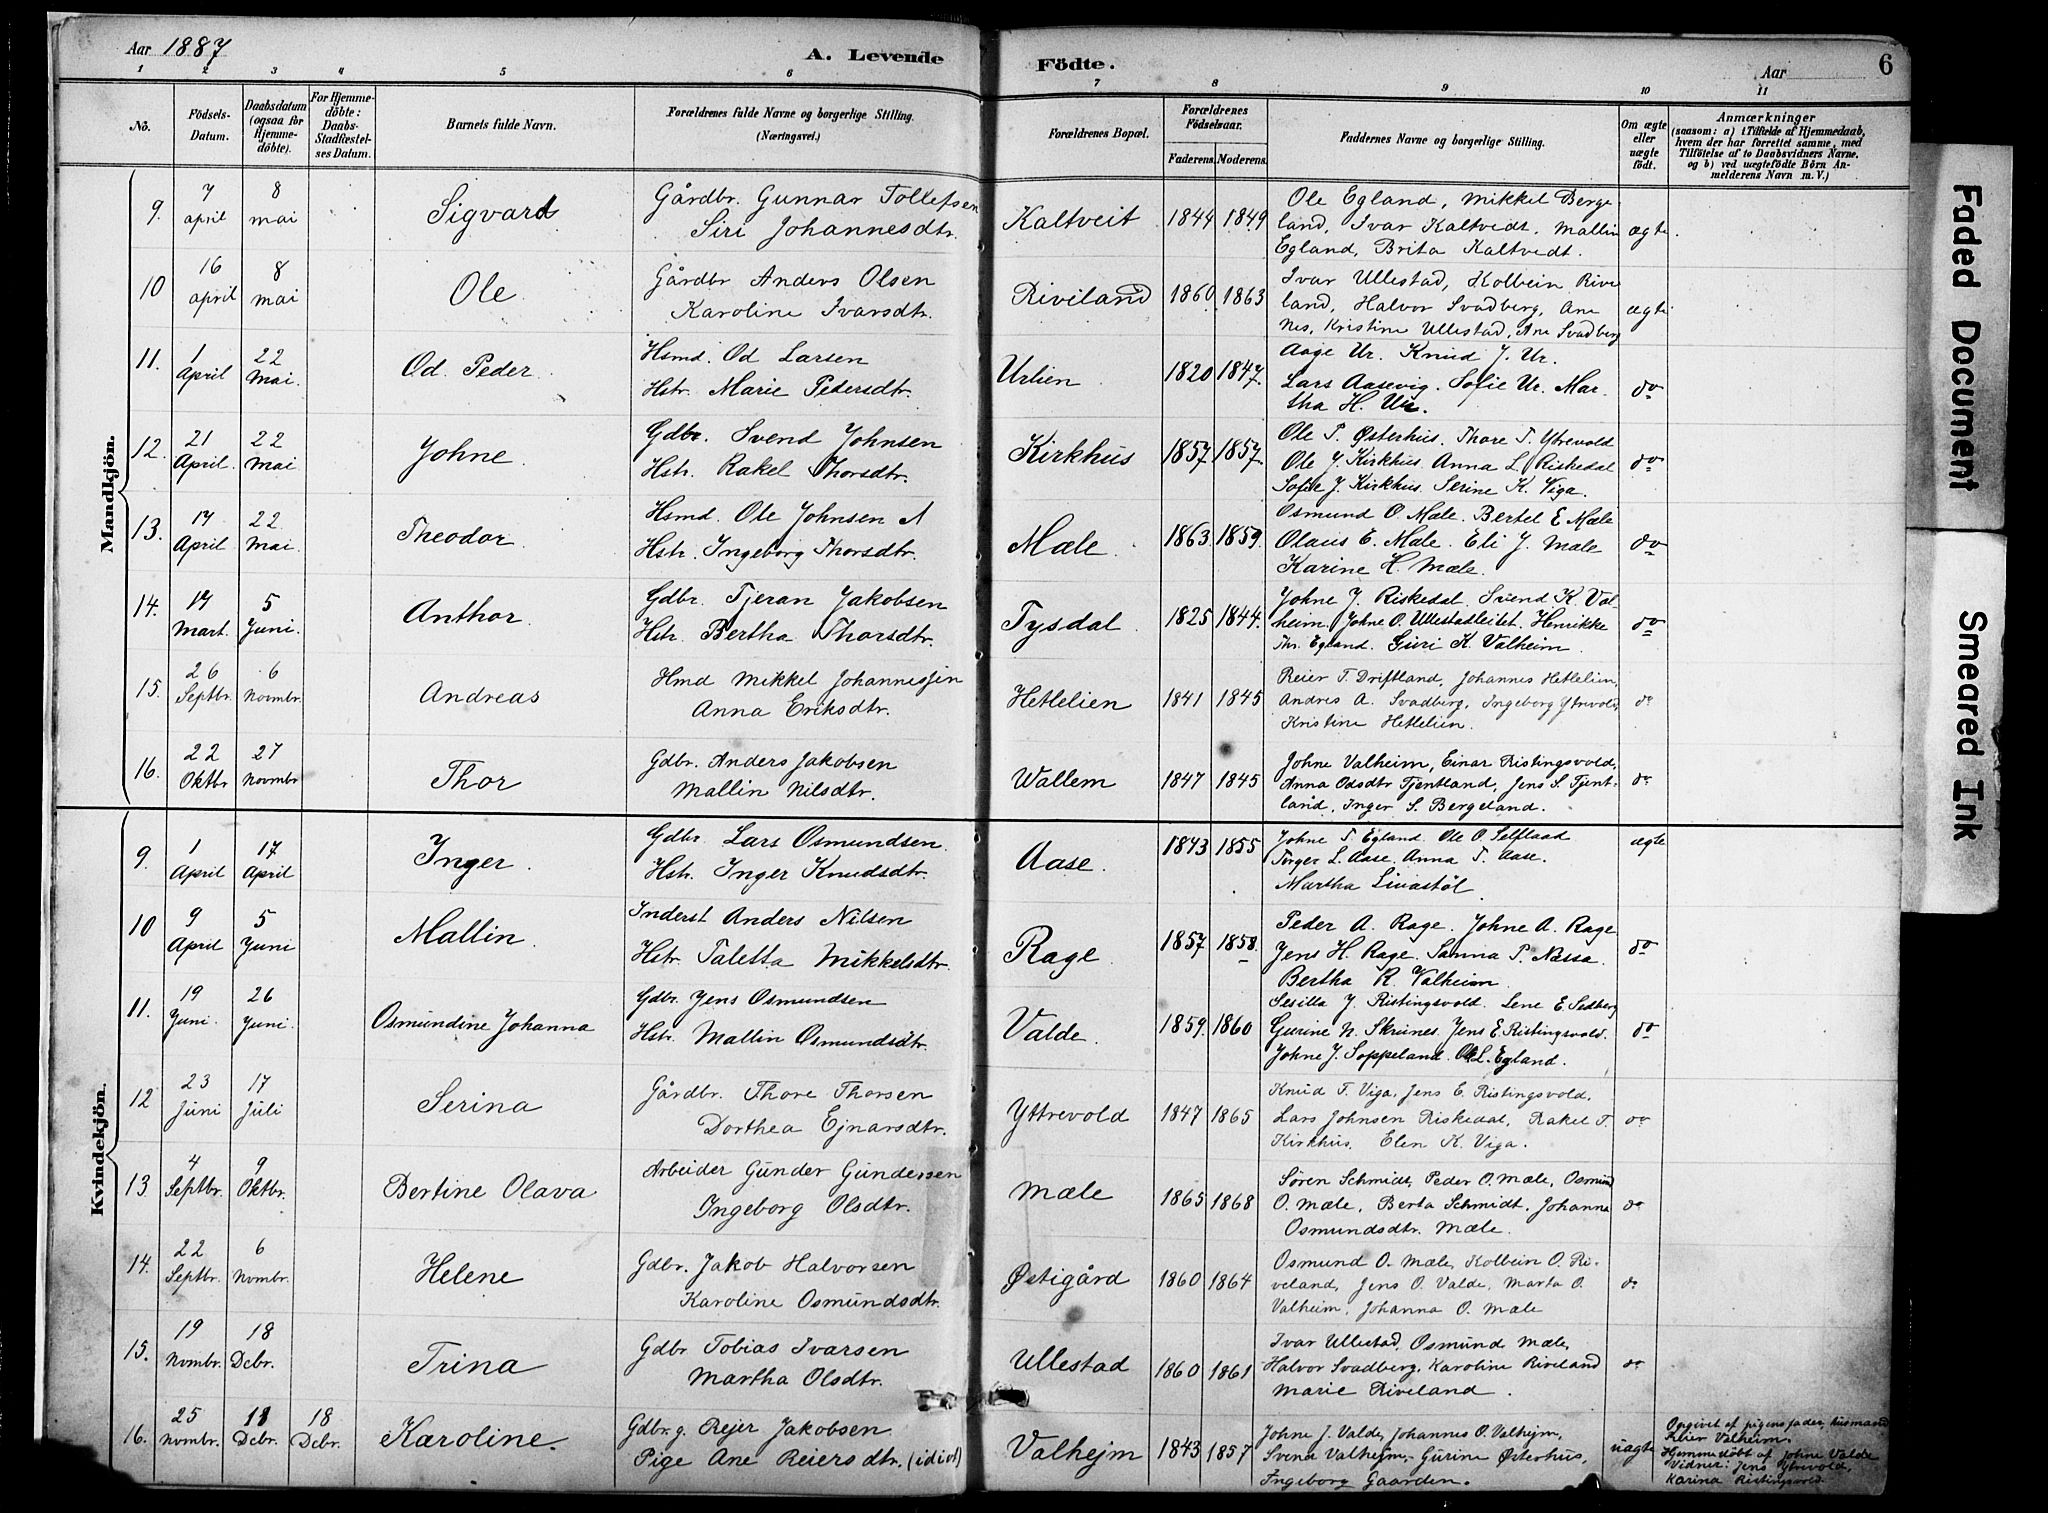 Aar 1887
A. Levende Födte.
Aar
6
1 2 3 4 5 6 7 8 9 10 11
No.
Födsels-Datum.
Daabsdatum (ogsaa for Hjemmedöbte).
For Hjemmedöbte: Daabs-Stadfæstelses Datum.
Barnets fulde Navn.
Forældrenes fulde Navne og borgerlige Stilling. (Næringsvei.)
Forældrenes Bopæl.
Forældrenes Födselsaar.
Faderens. Moderens.
Faddernes Navne og borgerlige Stilling.
Om ægte eller uægte födt.
Anmærkninger
(saasom: a) i Tilfælde af Hjemmedaab, hvem der har forrettet samme, med Tilföielse af to Daabsvidners Navne, og b) ved uægtefödte Börn Anmelderens Navn m. V.)
Mandkjön.
9. 7 april 8 mai Sigvard Gårdbr. Gunnar Tollefsen Kaltveit 1844 1849 Ole Egland, Mikkel Berge
Siri Johannesdtr. land, Ivar Kaltvedt, Mallin ægte.
Egland, Brita Kaltvedt.
10 16 april 8 mai Ole. Gårdbr Anders Olsen Riviland 1860 1863 Ivar Ullestad, Kolbein Rive
Karoline Ivarsdtr. land, Halvor Svadberg, Ane ægte
Nes, Kristine Ullestad, Ane Svadberg
11. 1 April 22 Mai. Od. Peder. Hsmd. Od Larsen Urlien 1820 1847. Aage Ur. Knud J. Ur.
Hstr. Marie Pedersdtr. Lars Aasevig. Sofie Ur. Mar- do
tha H. Ur.
12. 21 April. 22 Mai Johne. Gdbr. Svend Johnsen Kirkhus 1857 1857. Ole T. Østerhus. Thore T. Ytrevold
Hstr. Rakel Thorsdtr. Ole J. Kirkhus. Anna L. Riskedal do
Sofie J. Kirkhus. Serine K. Viga.
13. 17 April 22 Mai. Theodor. Hsmd. Ole Johnsen Mæle. 1863. 1859. Osmund O. Mæle. Bertel E Mæle
Hstr. Ingeborg Thorsdtr. Olaus E. Mæle. Eli J. Mæle do
Karine H. Mæle.
14. 17 Mart. 5 Juni. Anthor. Gdbr. Tjeran Jakobsen Tysdal 1825 1844. Johne J. Riskedal. Svend K. Val-
Hstr. Bertha Thorsdtr. heim. Johne O. Ullestadleitet. Henrikke do
Thr. Egland. Guri K. Valheim.
15. 26 Septbr. 6 Novmbr. Andreas Hmd Mikkel Johannesjen Hetlelien 1841 1845 Reier T. Driftland, Johannes Hetlelien,
Anna Eriksdtr. Andres A. Svadberg, Ingeborg Ytrevold, do
Kristine Hetlelien.
16. 22 Oktbr 27 Novmbr Thor Gdbr. Anders Jakobsen Wallem 1847 1845 Johne Valheim, Einar Ristingsvold,
Mallin Nilsdtr. Anna Odsdtr Tjentland, Jens S. Tjent- do
land, Inger S. Bergeland.
Kvindekjön.
9. 1 April 17 April Inger. Gdbr. Lars Osmundsen. Aase. 1843 1855 Johne T. Egland. Ole O. ægte
Hstr. Inger Knudsdtr. Torger L. Aase. Anna T. Aase.
Martha
10 9 April 5 Juni Mallin. Inderst Anders Nilsen Rage. 1857 1858. Peder A. Rage. Johne A. Rage
Hstr. Taletta Mikkelsdtr. Jens H. Rage. Sanna P. Nessa. do
Bertha R. Valheim.
11. 19 Juni. 26 Juni. Osmundine Johanna Gdbr. Jens Osmundsen Valde. 1859. 1860 Sesilla J. Ristingsvold. Lene E. Sedberg
Hstr. Mallin Osmundsdtr. Gurine N. Skrunes. Jens E Ristingsvold. do
Johne J. Soppeland. Ole L. Egland.
12 23 Juni 17 Juli Serina Gårdbr. Thore Thorsen Yttrevold 1847 1865 Knud T. Viga, Jens E. Ristingsvold,
Dorthea Ejnarsdtr. Lars Johnsen Riskedal, Rakel T. do
Kirkhus, Elen K. Viga.
13 4 Septbr. 9 Oktbr. Bertine Olava Arbeider Gunder Gundersen Mæle 1865 1868 Søren Schmidt, Peder O. Mæle, Osmund
Ingeborg Olsdtr. O. Mæle, Berta Schmidt, Johanna do
Osmundsdtr. Mæle.
14. 22 Septbr. 6 Novmbr. Helene Gdbr. Jakob Halvorsen Østigård 1860 1864 Osmund O. Mæle, Kolbein O. Ri-
Karoline Osmundsdtr. veland, Jens O. Valde, Marta O. do
Valheim, Johanna O. Mæle
15. 19 Novmbr. 18 Dcbr. Trina Gdbr Tobias Ivarsen Ullestad 1860 1861 Ivar Ullestad, Osmund Mæle,
Martha Olsdtr. Halvor Svadberg, Karoline Riveland do
Marie Riveland.
16. 25 Novmbr. 18 Dcbr. 18 Dcbr. Karoline. Gdbr.g. Rejer Jakobsen Valhejm 1843 1857 Johne J. Valde, Johannes O. Valhejm,
Pige Ane Reiersdtr. (idiot) Svend Valhejm, Gurine Østerhus, uægte
Ingeborg Gaarden.
Opgivet af pigens fader, husmand
Reier Valheim.
Hjemmedöbt af Johne Valde
Vidner: Jens Ytrevold,
Karina Ristingsvold.
Faded Document
Smeared Ink